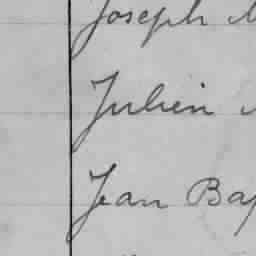 Joseph
Julien
Jean Bap